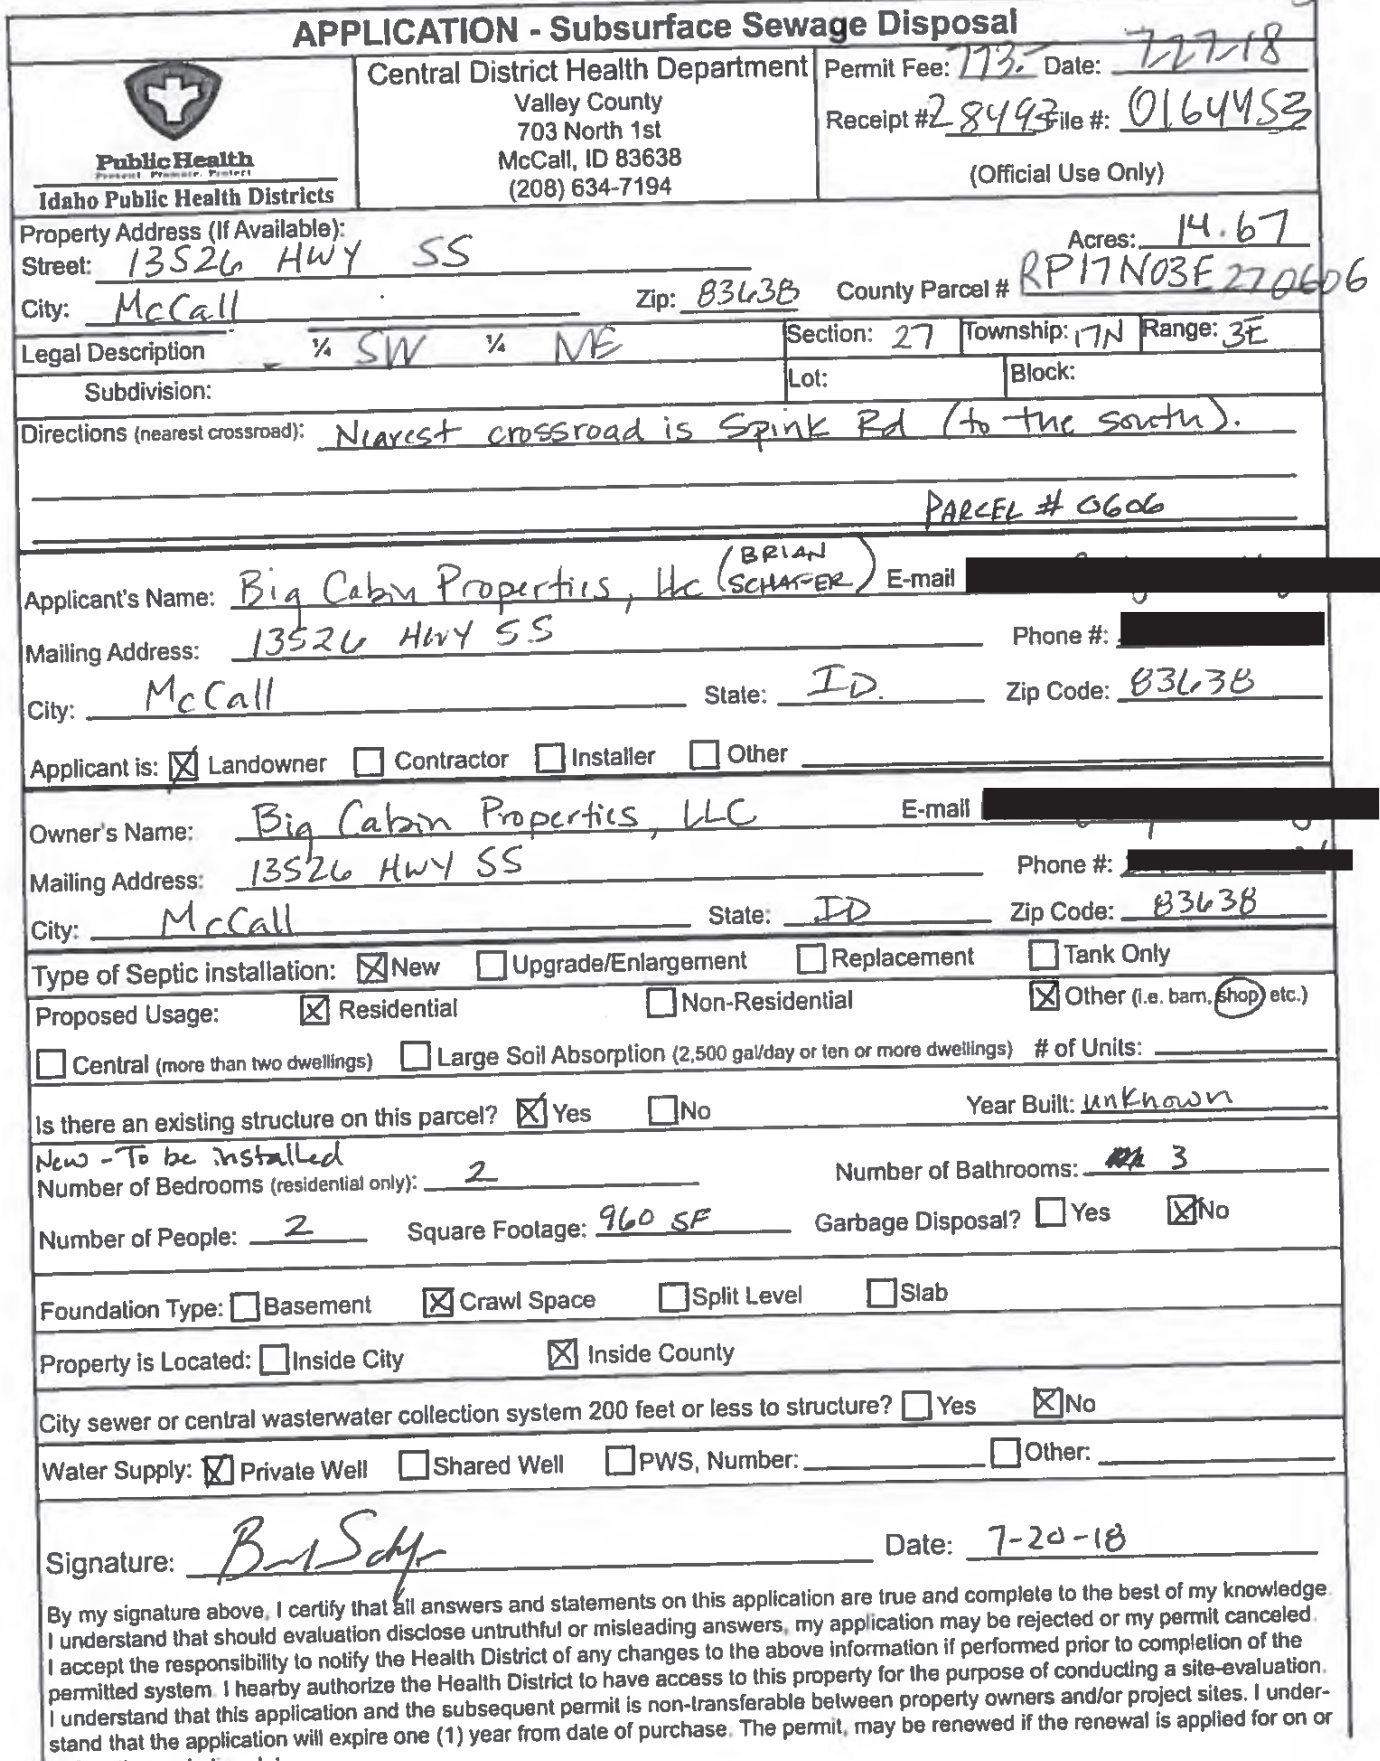 APPLICATION - Subsurface Sewage Disposal
Public Health
Prevent. Promote. Protect.
Idaho Public Health Districts
Central District Health Department
Valley County
703 North 1st
McCall, ID 83638
(208) 634-7194
Permit Fee: 773.- Date: 7-27-18
Receipt # 28493 File #: 0164453
(Official Use Only)
Property Address (If Available):
Street: 13526 HWY 55
Acres: 14.67
City: McCall Zip: 83638 County Parcel # RP17N03E270606
Legal Description ¼ SW ¼ NE Section: 27 Township: 17N Range: 3E
Subdivision: Lot: Block:
Directions (nearest crossroad): Nearest crossroad is Spink Rd (to the south).
PARCEL # 0606
Applicant's Name: Big Cabin Properties, llc (BRIAN SCHAFER) E-mail
Mailing Address: 13526 HWY 55 Phone #:
City: McCall State: ID. Zip Code: 83638
Applicant is: ☒ Landowner ☐ Contractor ☐ Installer ☐ Other
Owner's Name: Big Cabin Properties, LLC E-mail
Mailing Address: 13526 HWY 55 Phone #:
City: McCall State: ID Zip Code: 83638
Type of Septic installation: ☒ New ☐ Upgrade/Enlargement ☐ Replacement ☐ Tank Only
Proposed Usage: ☒ Residential ☐ Non-Residential ☒ Other (i.e. barn, shop etc.)
☐ Central (more than two dwellings) ☐ Large Soil Absorption (2,500 gal/day or ten or more dwellings) # of Units:
Is there an existing structure on this parcel? ☒ Yes ☐ No Year Built: unknown
New - To be installed
Number of Bedrooms (residential only): 2 Number of Bathrooms: 3
Number of People: 2 Square Footage: 960 SF Garbage Disposal? ☐ Yes ☒ No
Foundation Type: ☐ Basement ☒ Crawl Space ☐ Split Level ☐ Slab
Property is Located: ☐ Inside City ☒ Inside County
City sewer or central wasterwater collection system 200 feet or less to structure? ☐ Yes ☒ No
Water Supply: ☒ Private Well ☐ Shared Well ☐ PWS, Number: ☐ Other:
Signature: Date: 7-20-18
By my signature above, I certify that all answers and statements on this application are true and complete to the best of my knowledge.
I understand that should evaluation disclose untruthful or misleading answers, my application may be rejected or my permit canceled.
I accept the responsibility to notify the Health District of any changes to the above information if performed prior to completion of the
permitted system. I hearby authorize the Health District to have access to this property for the purpose of conducting a site-evaluation.
I understand that this application and the subsequent permit is non-transferable between property owners and/or project sites. I under-
stand that the application will expire one (1) year from date of purchase. The permit, may be renewed if the renewal is applied for on or